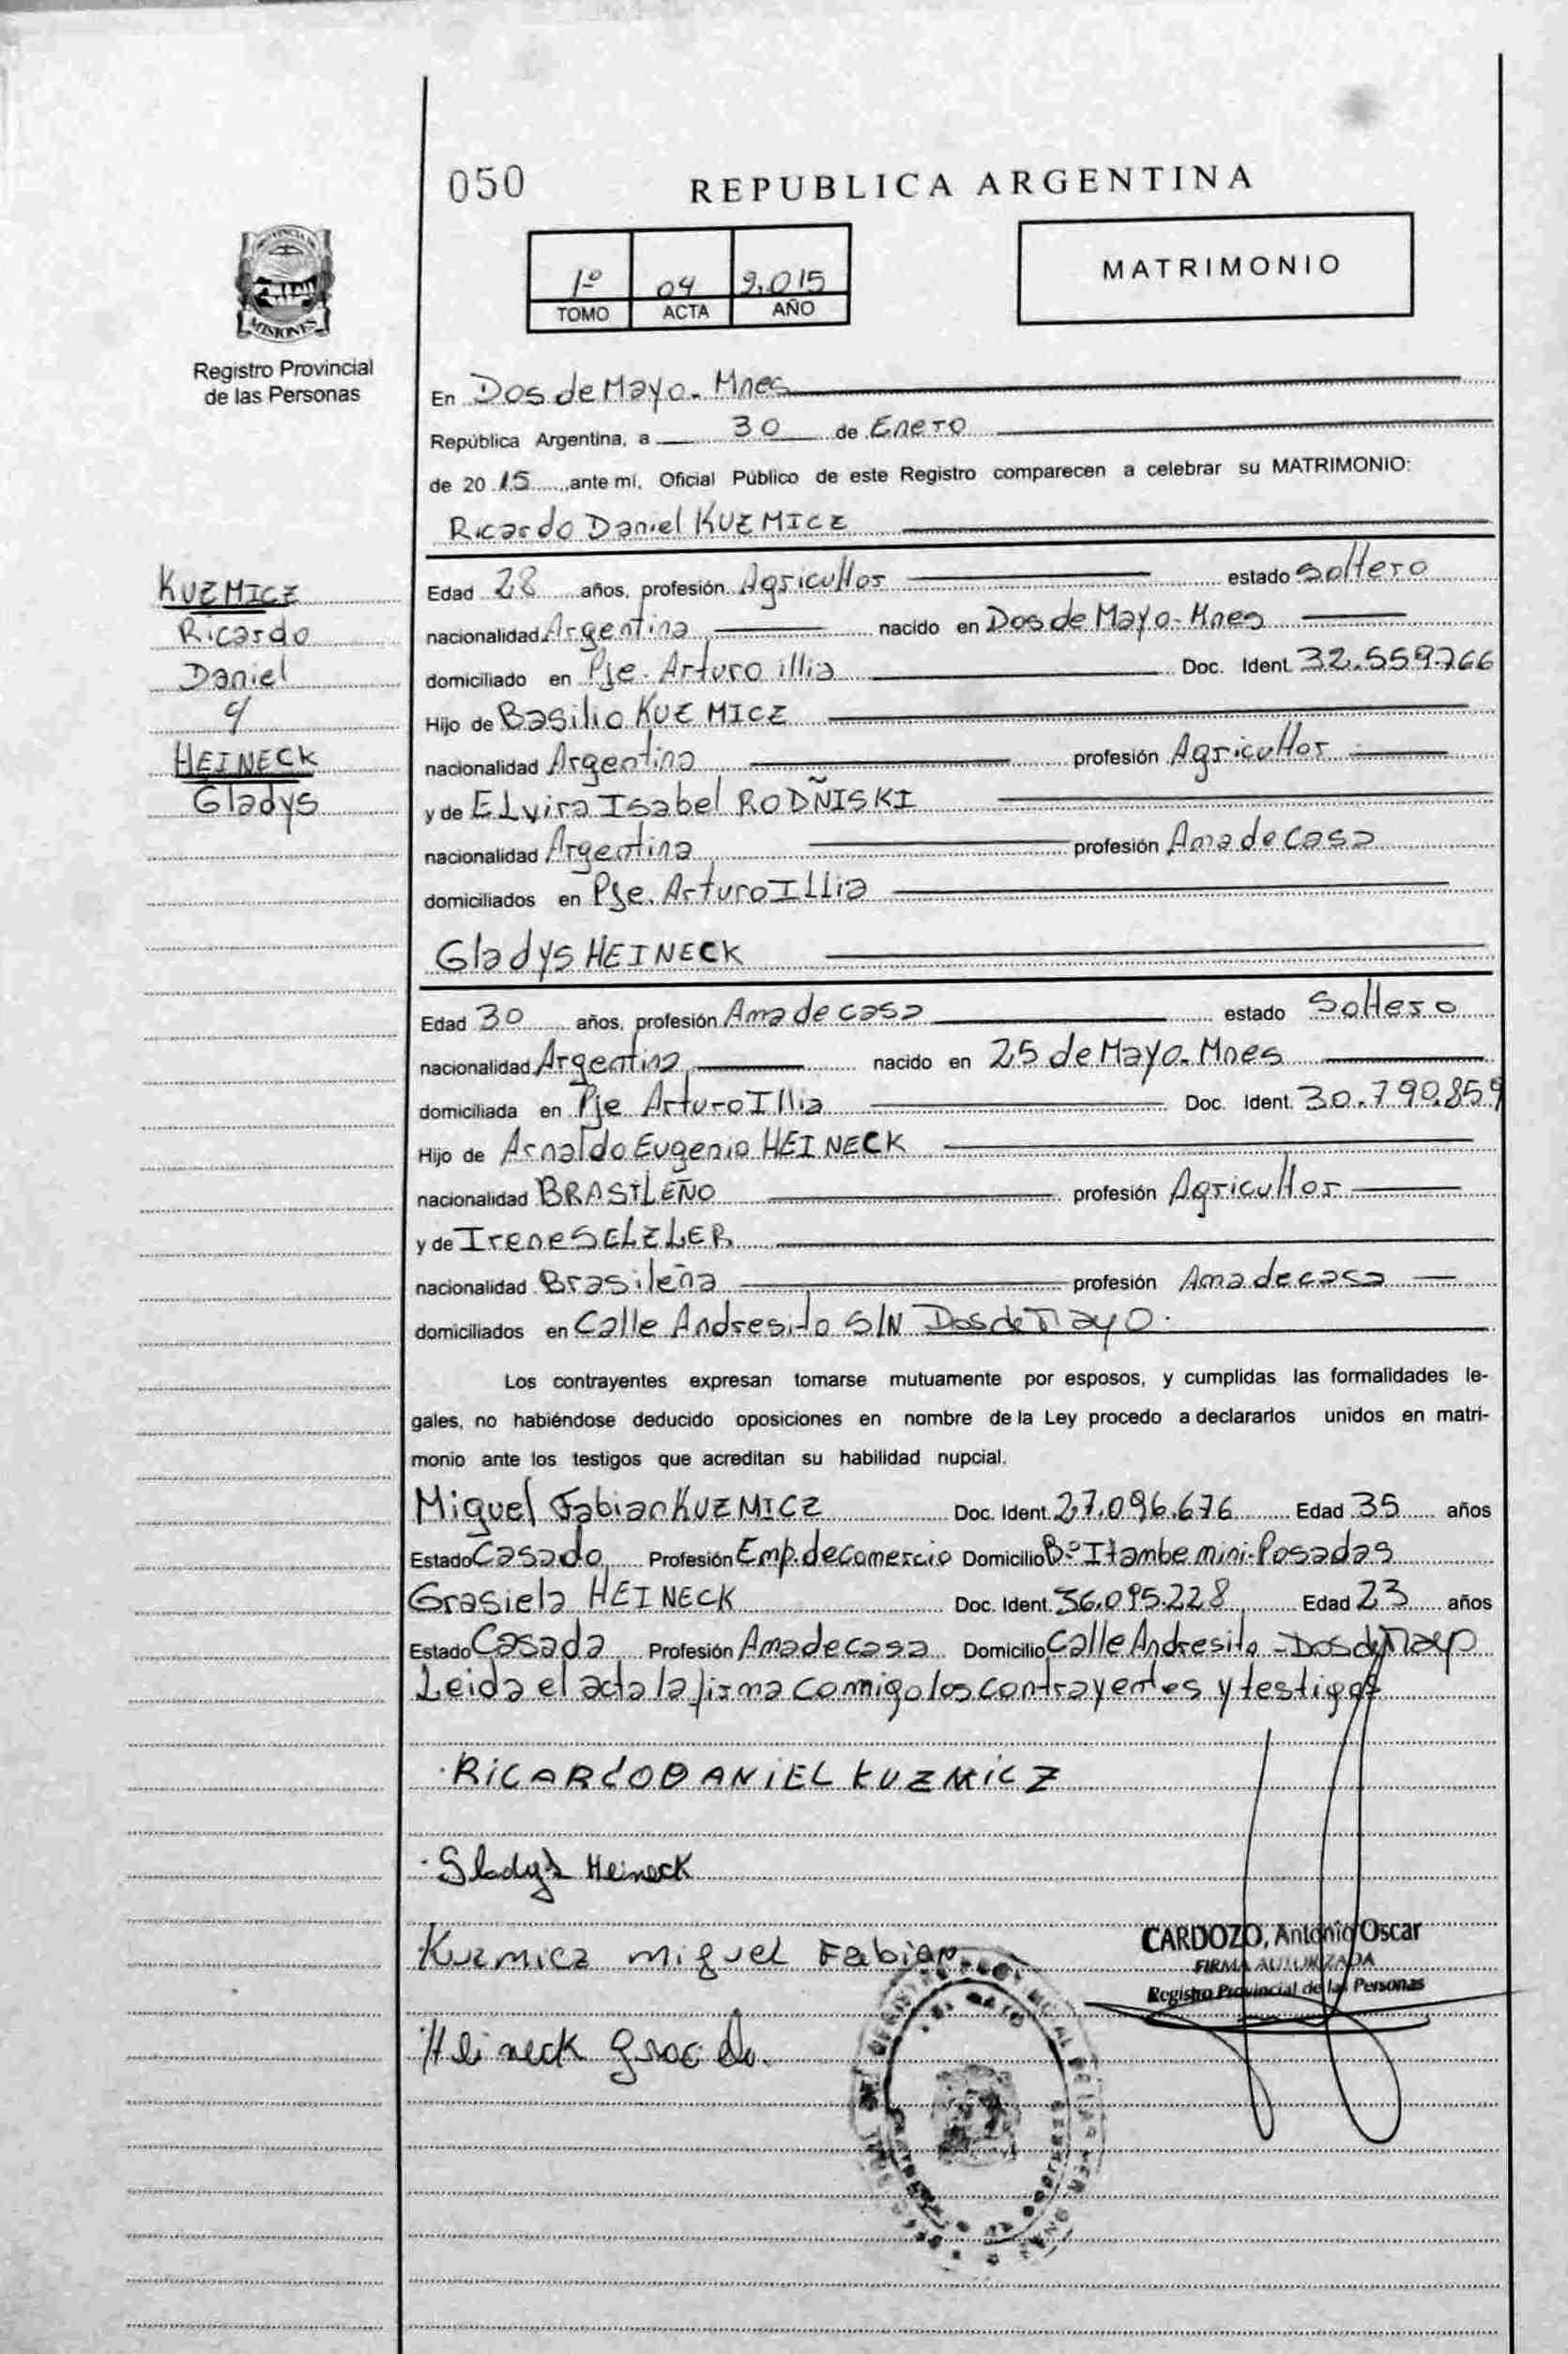 050
REPUBLICA ARGENTINA
1º 04 2.015
TOMO ACTA AÑO
MATRIMONIO
MISIONES
Registro Provincial
de las Personas
En Dos de Mayo - Mnes
República Argentina, a 30 de Enero
de 20 15 ante mí, Oficial Público de este Registro comparecen a celebrar su MATRIMONIO:
Ricardo Daniel KUZMICZ
KUZMICZ
Ricardo
Daniel
y
HEINECK
Gladys
Edad 28 años, profesión Agricultor estado soltero
nacionalidad Argentina nacido en Dos de Mayo - Mnes
domiciliado en Pje. Arturo illia Doc. Ident. 32.559.766
Hijo de Basilio KUZMICZ
nacionalidad Argentina profesión Agricultor
y de ELvira Isabel RODÑISKI
nacionalidad Argentina profesión Ama de casa
domiciliados en Pje. Arturo ILLia
Gladys HEINECK
Edad 30 años, profesión Ama de casa estado Soltero
nacionalidad Argentina nacido en 25 de Mayo - Mnes
domiciliada en Pje Arturo Illia Doc. Ident. 30.790.859
Hijo de Arnaldo Eugenio HEINECK
nacionalidad BRASILEÑO profesión Agricultor
y de Irene SELZLER
nacionalidad Brasileña profesión Ama de casa
domiciliados en Calle Andresito S/N Dos de Mayo.
Los contrayentes expresan tomarse mutuamente por esposos, y cumplidas las formalidades le-
gales, no habiéndose deducido oposiciones en nombre de la Ley procedo a declararlos unidos en matri-
monio ante los testigos que acreditan su habilidad nupcial.
Miguel Fabian KUZMICZ Doc. Ident. 27.096.676 Edad 35 años
Estado Casado Profesión Emp. de Comercio Domicilio Bº Itambe mini - Posadas
Grasiela HEINECK Doc. Ident. 36.095.228 Edad 23 años
Estado Casada Profesión Ama de casa Domicilio Calle Andresito - Dos de Mayo
Leida el acta la firma comigo los contrayentes y testigos
RICARdO DANiEL KUZMiCZ
Gladys Heineck
Kuzmicz miguel Fabian
Heineck
CARDOZO, Antonio Oscar
FIRMA AUTORIZADA
Registro Provincial de las Personas